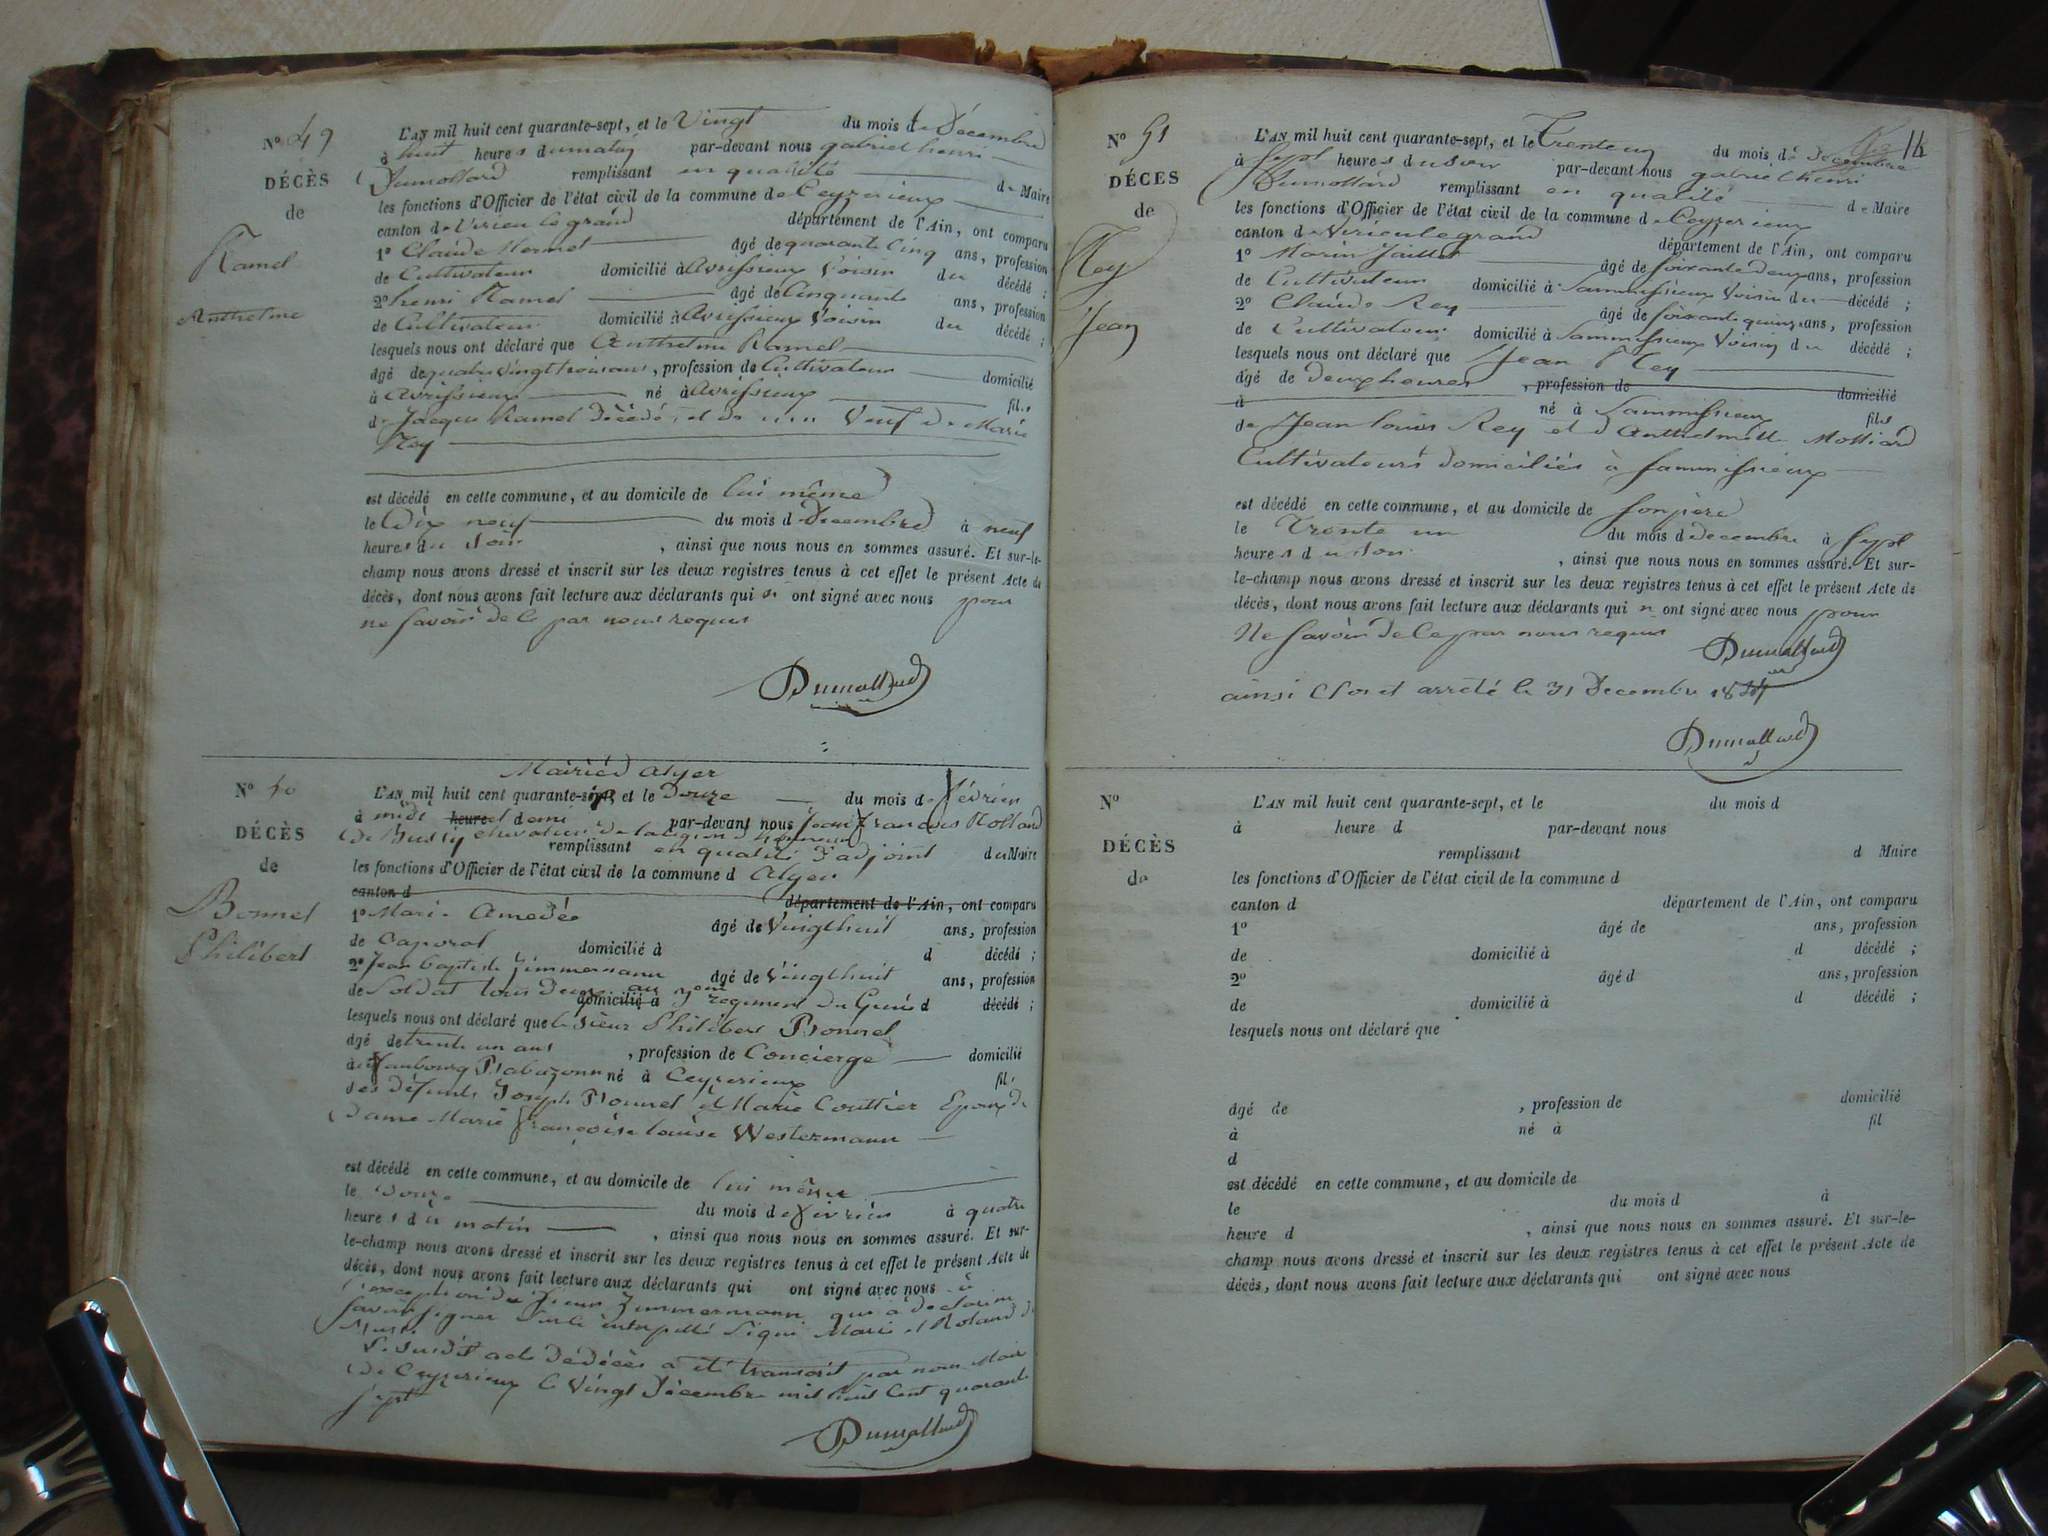 N° 49
DÉCÈS
de
Ramel
Anthelme
L'AN mil huit cent quarante-sept, et le Vingt du mois de Décembre
à huit heures du matin par-devant nous gabriel henri
Dumollard remplissant en qualité de Maire
les fonctions d'Officier de l'état civil de la commune de Ceyzerieux
canton de Virieu le grand département de l'Ain, ont comparu
1° Claude Mermet âgé de quarante Cinq ans, profession
de Cultivateur domicilié à Avrissieux Voisin du décédé ;
2° henri Ramel âgé de Cinquante ans, profession
de Cultivateur domicilié à Avrissieux Voisin du décédé ;
lesquels nous ont déclaré que Anthelme Ramel
âgé de quatre Vingt trois ans, profession de Cultivateur domicilié
à Avrissieux né à Avrissieux fils
de Jacque Ramel Décédé, et de Veuf de Marie
Rey
est décédé en cette commune, et au domicile de lui même
le Dix neuf du mois d Decembre à neuf
heures du Soir, ainsi que nous nous en sommes assuré. Et sur-le-
champ nous avons dressé et inscrit sur les deux registres tenus à cet effet le présent Acte de
décès, dont nous avons fait lecture aux déclarants qui n ont signé avec nous pour
ne Savoir de ce par nous requis
Dumollard
N° 50
DÉCÈS
de
Bonnel
Philibert
Mairie d'Alger
L'AN mil huit cent quarante-sept, et le Douze du mois de février
à midi heure d emi par-devant nous Jean François Rolland
De Bussy chevalier de la légion d honneur
remplissant en qualité d'adjoint du Maire
les fonctions d'Officier de l'état civil de la commune d Alger
canton d département de l'Ain, ont comparu
1° Marie Amédée âgé de Vingt huit ans, profession
de Caporal domicilié à d décédé ;
2° Jean baptiste Zimmermann âgé de Vingt huit ans, profession
de Soldat tous Deux au domicilié à regiment du Genie d décédé ;
lesquels nous ont déclaré que le Sieur Philibert Bonnel
âgé de trente un ans, profession de Concierge domicilié
à faubourg Babazoun né à Ceyzerieux fils
des défunts Joseph Bonnel et Marie Couttier Epoux de
Dame Marie françoise louise Westermann
est décédé en cette commune, et au domicile de lui même
le Douze du mois de février à quatre
heures du matin, ainsi que nous nous en sommes assuré. Et sur-
le-champ nous avons dressé et inscrit sur les deux registres tenus à cet effet le présent Acte de
décès, dont nous avons fait lecture aux déclarants qui ont signé avec nous à
l'exception du Sieur Zimmermann qui a déclaré ne
Savoir signer Sur le interpellé Signé Marie et Roland de
Bussi
Le susdit acte de décès a été transcrit par nous Maire
de Ceyzerieux le Vingt Décembre mil huit Cent quarante
sept
Dumollard
14
N° 51
DÉCES
de
Rey
Jean
L'AN mil huit cent quarante-sept, et le Trente un du mois de Decembre
à Sept heures du soir par-devant nous gabriel henri
Dumollard remplissant en qualité de Maire
les fonctions d'Officier de l'état civil de la commune de Ceyzerieux
canton de Virieu le grand département de l'Ain, ont comparu
1° Marin Jaillet âgé de soixante deux ans, profession
de Cultivateur domicilié à Sammissieux Voisin du décédé ;
2° Claude Rey âgé de soixante quinze ans, profession
de Cultivateur domicilié à Sammissieux Voisin du décédé ;
lesquels nous ont déclaré que Jean Rey
âgé de Deux heures, profession de domicilié
à né à Sammissieux fils
de Jean louis Rey et d Anthelmette Molliard
Cultivateurs domiciliés à Sammissieux
est décédé en cette commune, et au domicile de son père
le Trente un du mois de decembre à Sept
heures du soir, ainsi que nous nous en sommes assuré. Et sur-
le-champ nous avons dressé et inscrit sur les deux registres tenus à cet effet le présent Acte de
décès, dont nous avons fait lecture aux déclarants qui n ont signé avec nous pour
Ne Savoir de Ce par nous requis
Dumollard
ainsi Clos et arrêté le 31 Decembre 1847
Dumollard
N°
DÉCÈS
de
L'AN mil huit cent quarante-sept, et le du mois d
à heure d par-devant nous
remplissant d Maire
les fonctions d'Officier de l'état civil de la commune d
canton d département de l'Ain, ont comparu
1° âgé de ans, profession
de domicilié à d décédé ;
2° âgé d ans, profession
de domicilié à d décédé ;
lesquels nous ont déclaré que
âgé de , profession de domicilié
à né à fil
d
est décédé en cette commune, et au domicile de
le du mois d à
heure d , ainsi que nous nous en sommes assuré. Et sur-le-
champ nous avons dressé et inscrit sur les deux registres tenus à cet effet le présent Acte de
décès, dont nous avons fait lecture aux déclarants qui ont signé avec nous